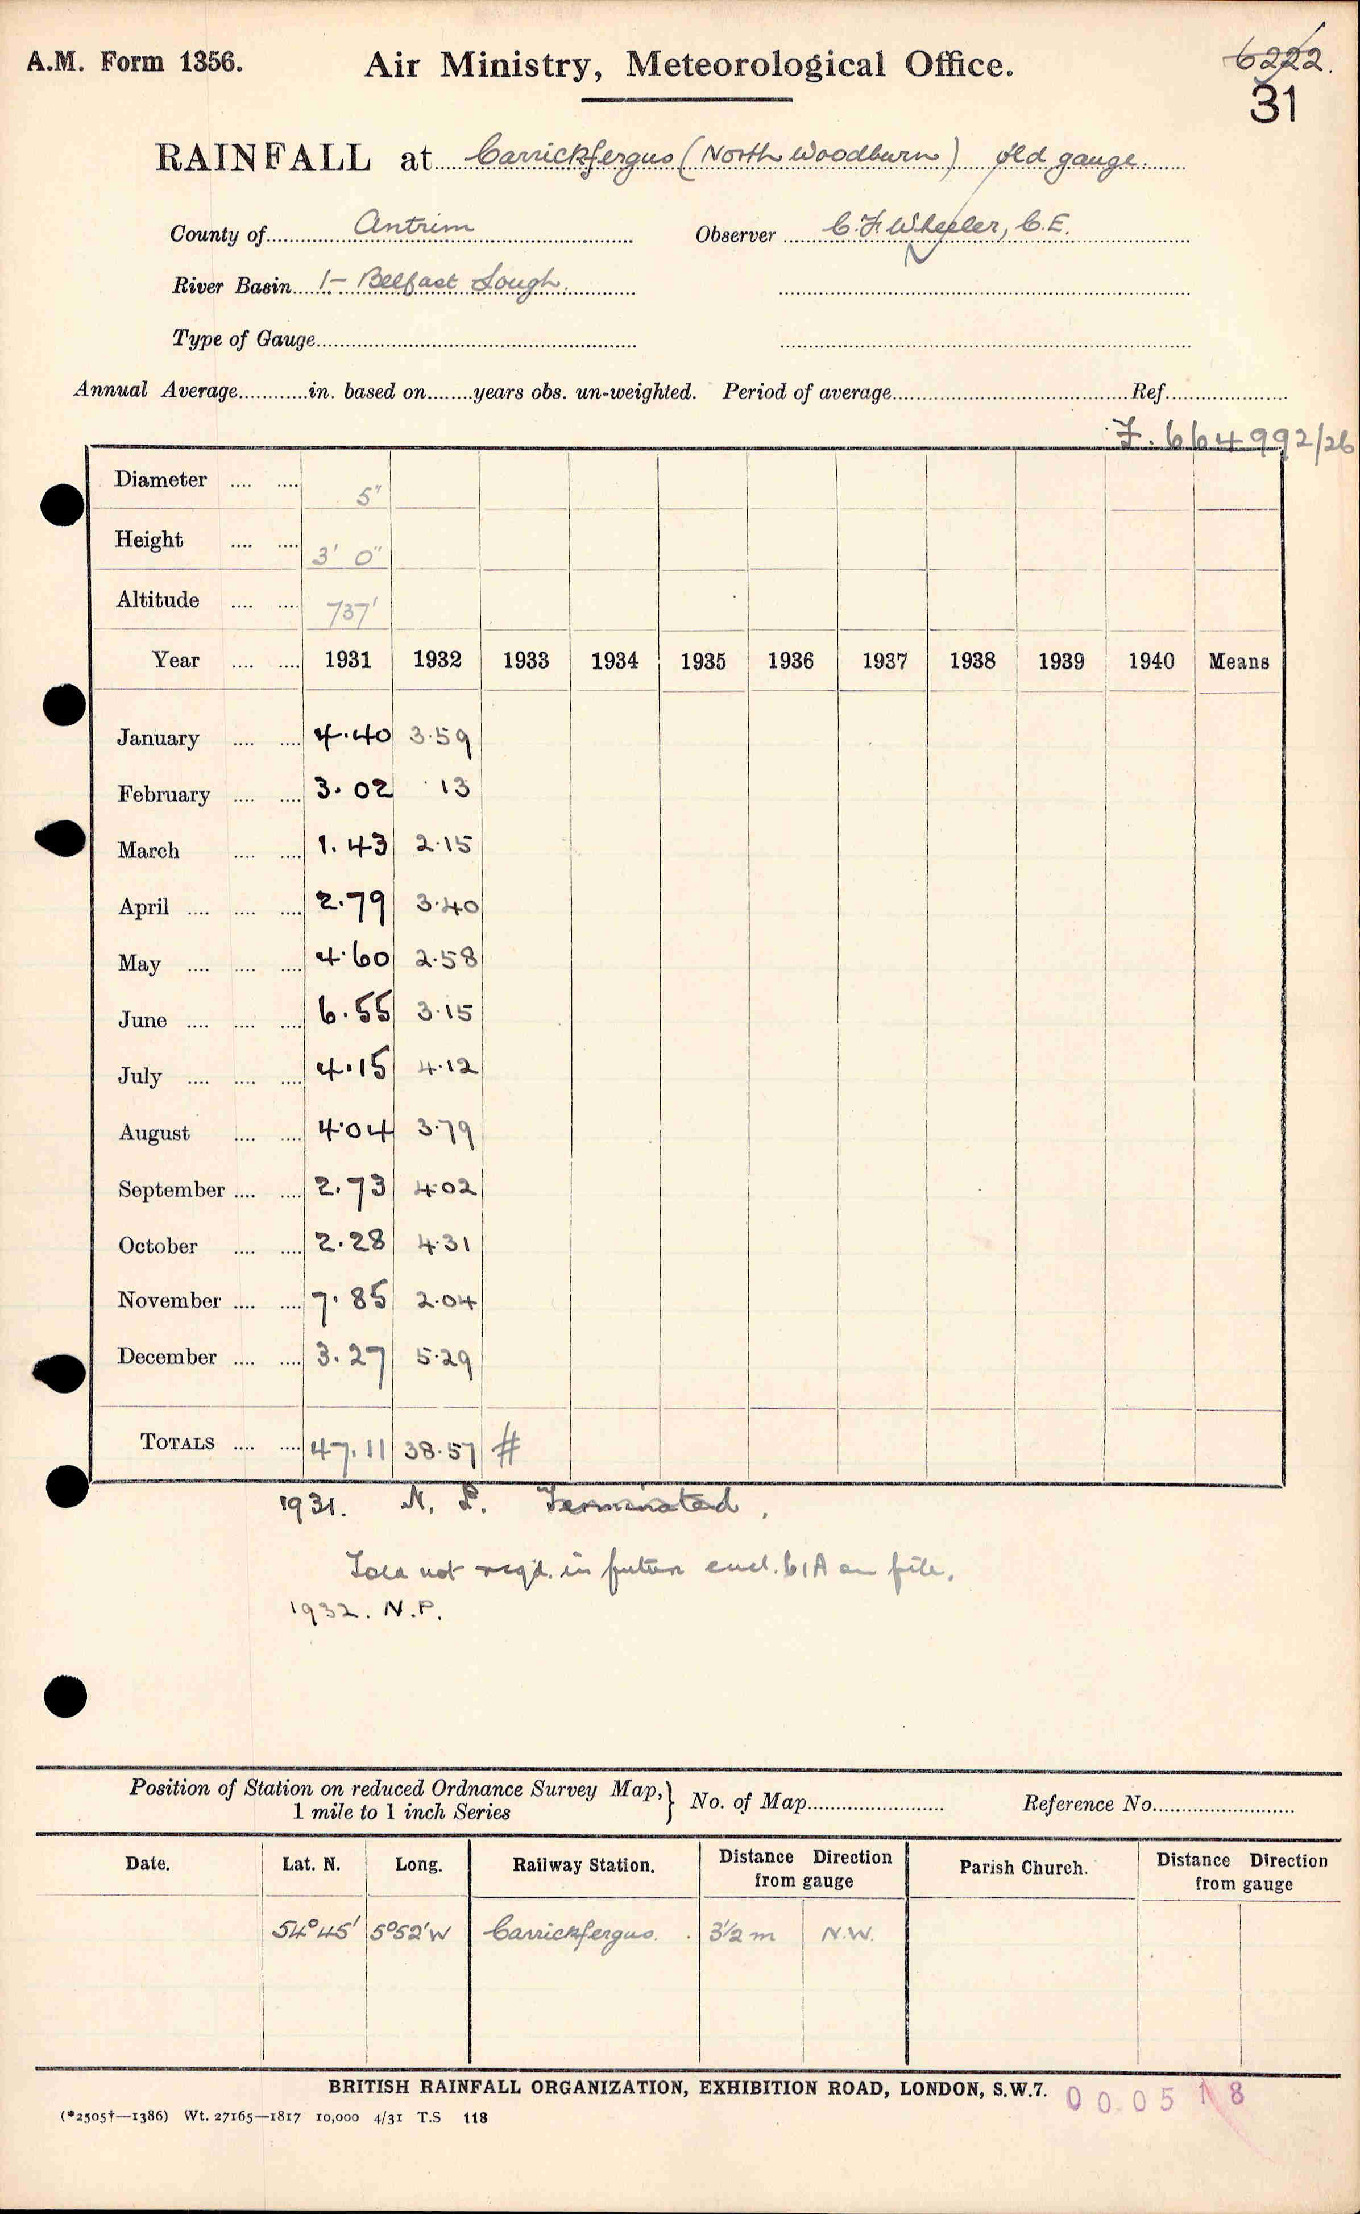 A.M. Form 1356.
Air Ministry, Meteorological Office.
6222.
31
RAINFALL at Carrickfergus (North Woodburn) old gauge
County of Antrim Observer C. F. Wheeler, C.E.
River Basin 1- Belfast Lough.
Type of Gauge
Annual Average in. based on years obs. un-weighted. Period of average Ref.
F. 664992/26
Diameter 5"
Height 3' 0"
Altitude 737'
Year 1931 1932 1933 1934 1935 1936 1937 1938 1939 1940 Means
January 4.40 3.59
February 3.02 .13
March 1.43 2.15
April 2.79 3.40
May 4.60 2.58
June 6.55 3.15
July 4.15 4.12
August 4.04 3.79
September 2.73 4.02
October 2.28 4.31
November 7.85 2.04
December 3.27 5.29
TOTALS 47.11 38.57 #
1931. N. P. Terminated.
not reqd. in future encl. 61A on file.
1932. N.P.
Position of Station on reduced Ordnance Survey Map, } No. of Map Reference No.
1 mile to 1 inch Series
Date. Lat. N. Long. Railway Station. Distance Direction from gauge Parish Church. Distance Direction from gauge
54°45' 5°52'W Carrickfergus. 3½ m N.W.
BRITISH RAINFALL ORGANIZATION, EXHIBITION ROAD, LONDON, S.W.7.
000518
(*2505†—1386) Wt. 27165—1817 10,000 4/31 T.S 118